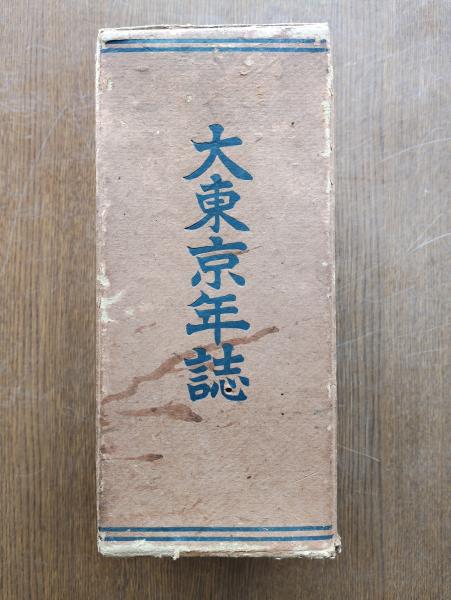 大東京年誌